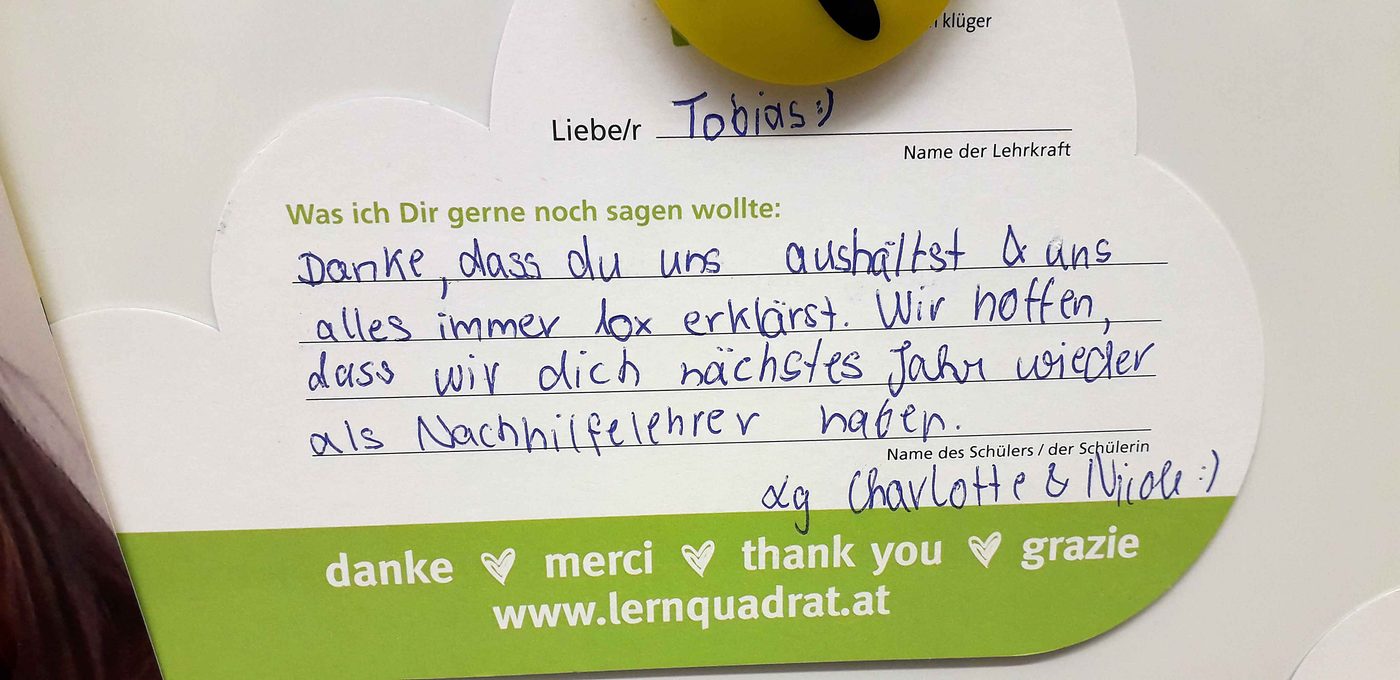 klüger
Liebe/r Tobias :)
Name der Lehrkraft
Was ich Dir gerne noch sagen wollte:
Danke, dass du uns aushältst & uns
alles immer 10x erklärst. Wir hoffen,
dass wir dich nächstes Jahr wieder
als Nachhilfelehrer haben.
Name des Schülers / der Schülerin
Lg Charlotte & Nicole :)
danke merci thank you grazie
www.lernquadrat.at